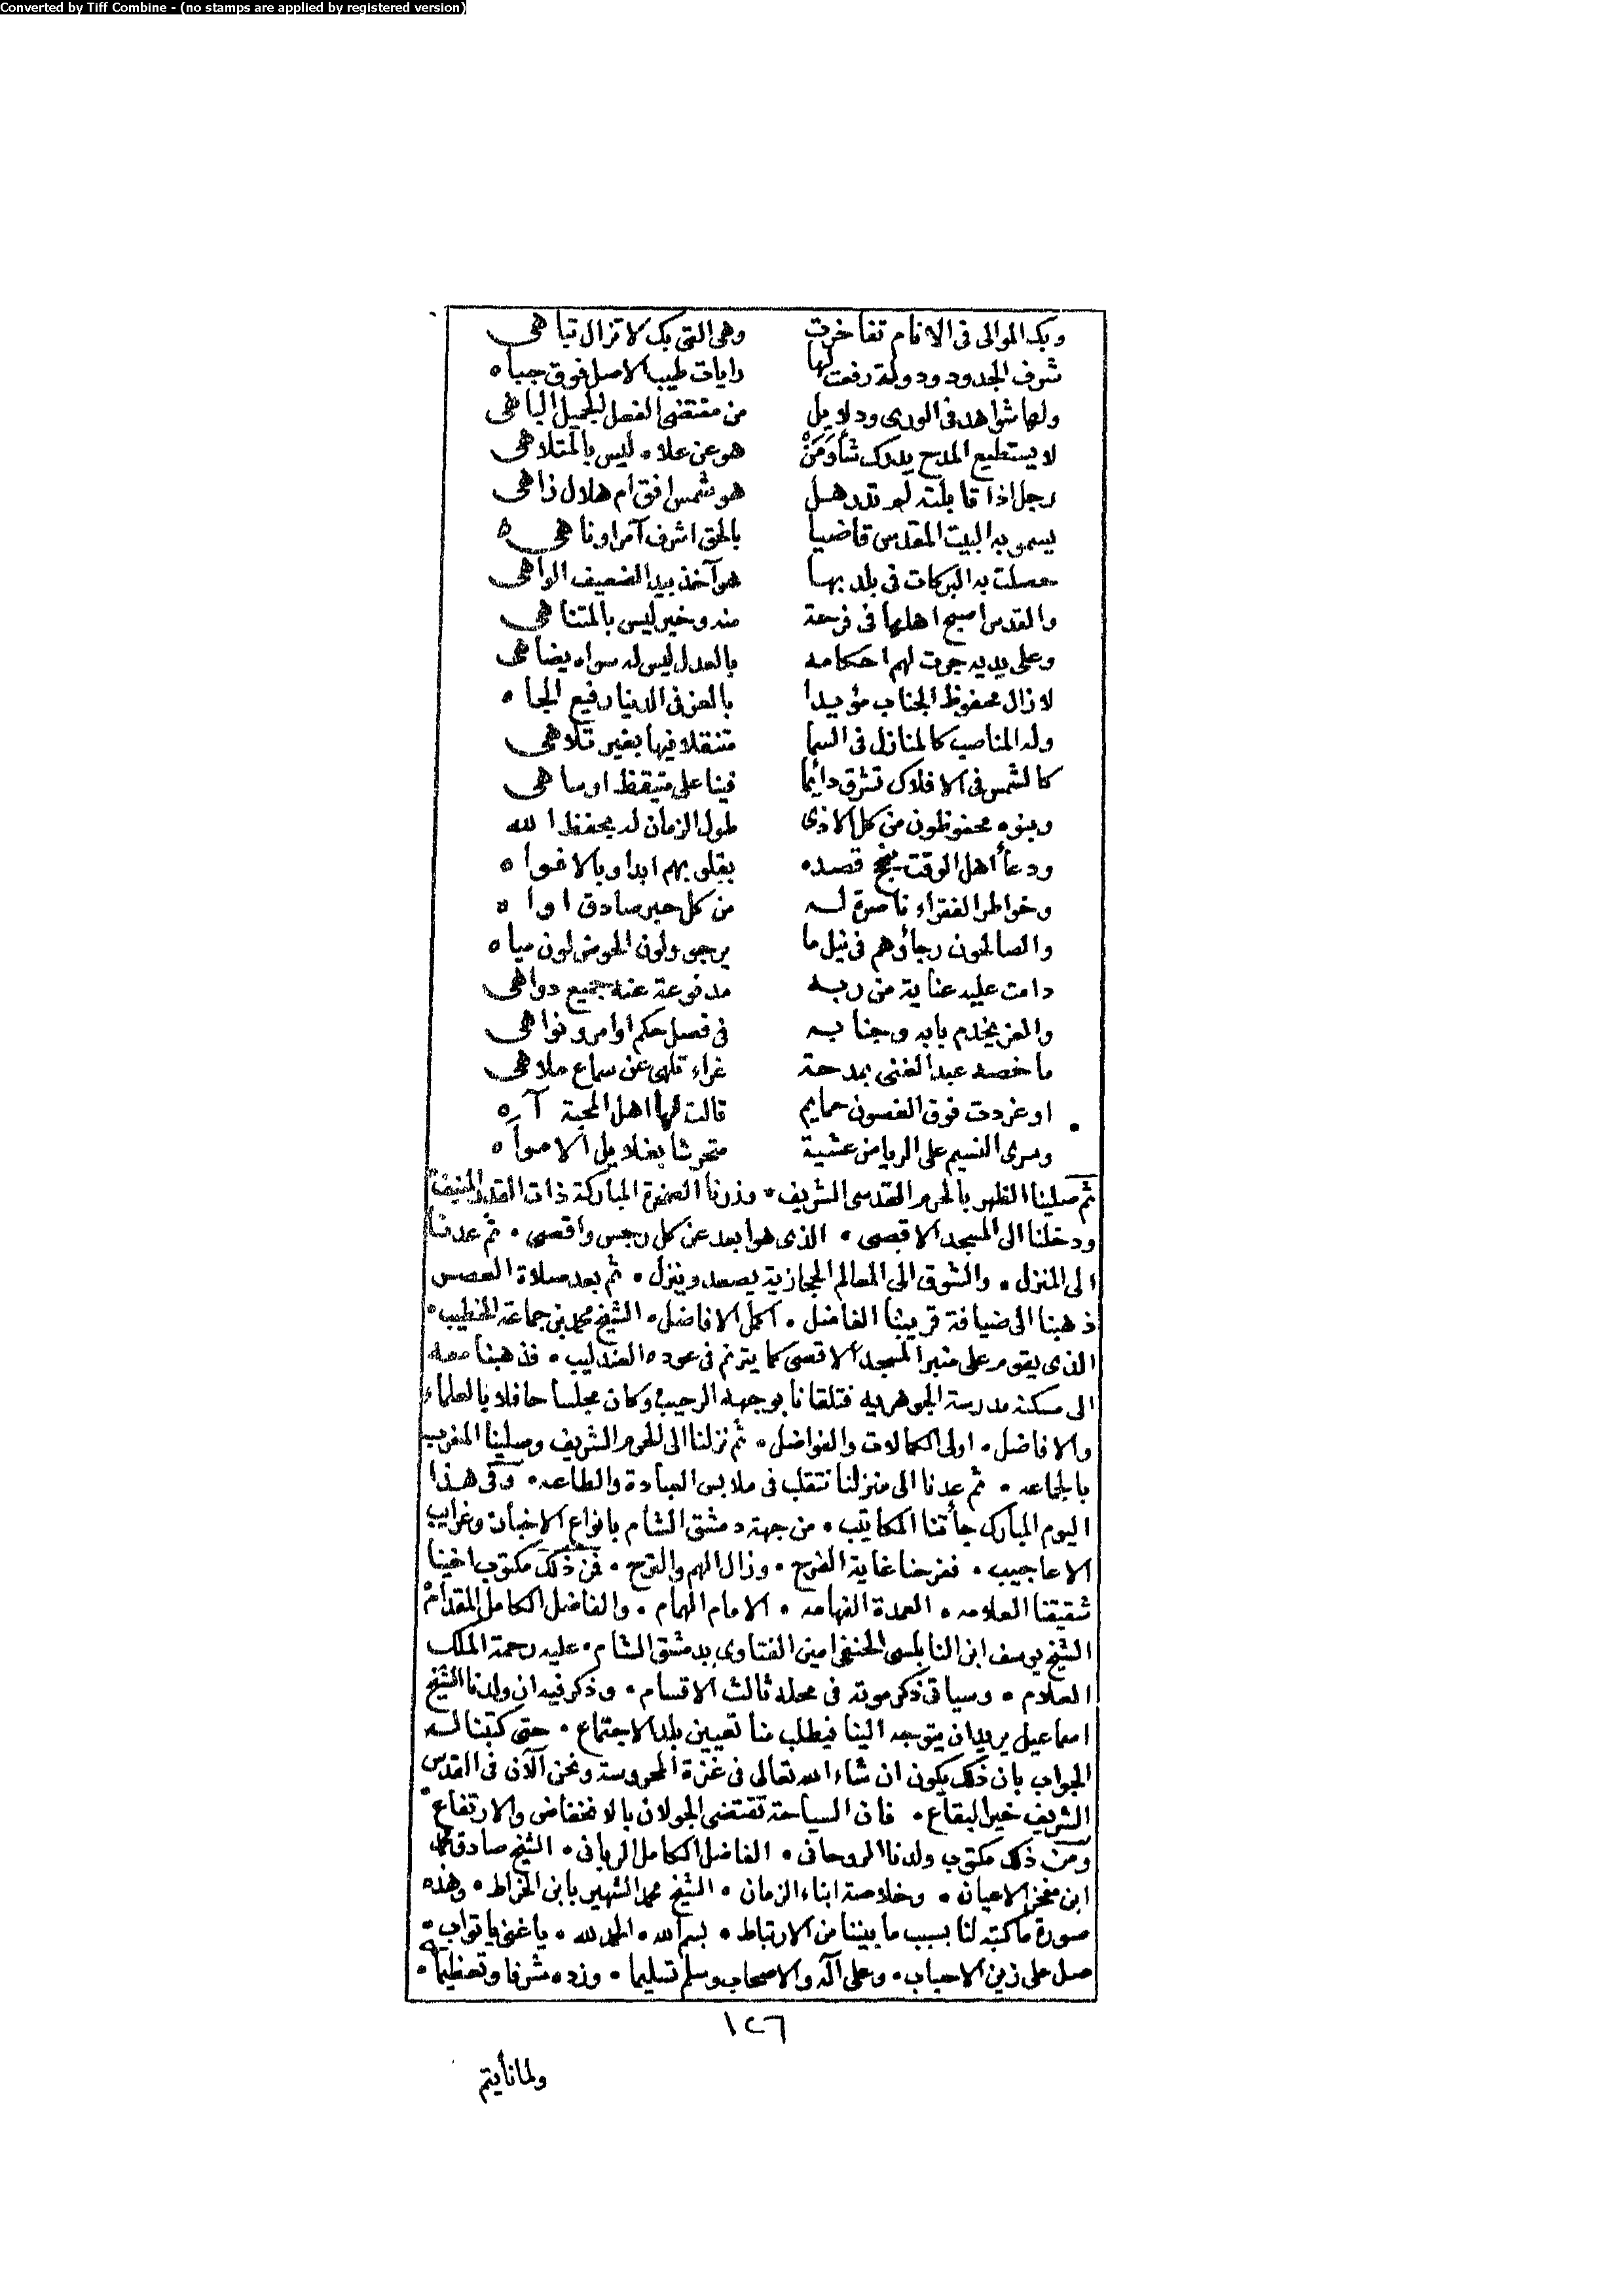 Converted by Tiff Combine - (no stamps are applied by registered version)
وبك الموالى فى الانام تفاخرت وهى التى بك لا تزال تباهى
شرف الجدود ودولة رفعت لها رايات طيب الاصل فوق جباه
ولها شواهد فى الورى ودلايل من مقتضى الفعل الجميل الباهى
لا يستطيع المدح يدرك شأو من هو عن علاه ليس بالمتلاهى
رجل اذا قابلته لم تدر هل هو شمس افق ام هلال زاهى
يسمو به البيت المقدس قاضيا بالحق اشرف آمر او ناهى
حصلت به البركات فى بلد بها هو آخذ بيد الضعيف الواهى
والقدس اصبح اهلها فى فرحة منه وخير ليس بالمتناهى
وعلى يديه جرت لهم احكامه بالعدل ليس له سواه يضاهى
لا زال محفوظ الجناب مؤيدا بالعز فى الدنيا رفيع الجاه
وله المناصب كالمنازل فى السما متنقلا فيها بغير تلاهى
كالشمس فى الافلاك تشرق دائما فينا على متيقظ او ساهى
وبنوه محفوظون من كل الاذى طول الزمان له بحفظ الله
ودعا اهل الوقت ينجح قصده بقلوبهم ابدا وبالافواه
وخواطر الفقراء ناصرة له من كل حبر صادق اواه
والصالحون رجاؤهم فى نيل ما يرجو ولون الحوض لون مياه
دامت عليه عناية من ربه مدفوعة عنه جميع دواهى
والعز يخدم بابه وجنابه فى فصل حكم اوامر ونواهى
ما خصه عبد الغنى بمدحة غراء تلهى عن سماع ملاهى
او غردت فوق الغصون حمايم قالت لها اهل المحبة آه
وسرى النسيم على الرياض عشية متحرشا بغلايل الامواه
ثم صلينا الظهر بالحرم القدسى الشريف • وزرنا الصخرة المباركة ذات القدر المنيف
ودخلنا الى المسجد الاقصى • الذى هو ابعد عن كل رجس واقصى • ثم عدنا
الى المنزل • والشوق الى المعالم الحجازية يصعد وينزل • ثم بعد صلاة العصر
ذهبنا الى ضيافة قريبنا الفاضل • اكمل الافاضل • الشيخ محمد بن جماعة الخطيب •
الذى يقوم على منبر المسجد الاقصى كما يترنم فى عوده العندليب • فذهبنا معه
الى مسكنه مدرسة الجوهريه فتلقانا بوجهه الرحيب وكان مجلسا حافلا بالعلماء
والافاضل • اولى الكمالات والفواضل • ثم نزلنا الى الحرم الشريف وصلينا المغرب
بالجماعه • ثم عدنا الى منزلنا نتقلب فى ملابس العبادة والطاعه • وفى هذا
اليوم المبارك جأتنا المكاتيب • من جهة دمشق الشأم بانواع الاخبار وغرايب
الاعاجيب • ففرحنا غاية الفرح • وزال الهم والترح • فمن ذلك مكتوب اخينا
شقيقنا العلامه • العمدة الفهامه • الامام الهمام • والفاضل الكامل المقدام
الشيخ يوسف ابن النابلسى الحنفى امين الفتاوى بدمشق الشام • عليه رحمة الملك
العلام • وسياتى ذكر موته فى محله ثالث الاقسام • وذكر فيه ان ولدنا الشيخ
اسماعيل يريد ان يتوجه الينا فيطلب منا تعيين بلد الاجتماع • حتى كتبنا له
الجواب بان ذلك يكون ان شاء الله تعالى فى غزة المحروسة ونحن الآن فى القدس
الشريف خير البقاع • فان السياحة تقتضى الجولان بالانخفاض والارتفاع •
ومن ذلك مكتوب ولدنا الروحانى • الفاضل الكامل الربانى • الشيخ صادق محمد
ابن مفخر الاعيان • وخلاصة ابناء الزمان • الشيخ محمد الشهير بابن الخراط • وهذه
صورة ما كتبه لنا بسبب ما بيننا من الارتباط • بسم الله • الحمد لله • يا غنى يا تواب •
صل على زين الاحباب • وعلى آله والاصحاب وسلم تسليما • وزده شرفا وتعظيما •
١٢٦
ولما نأيتم